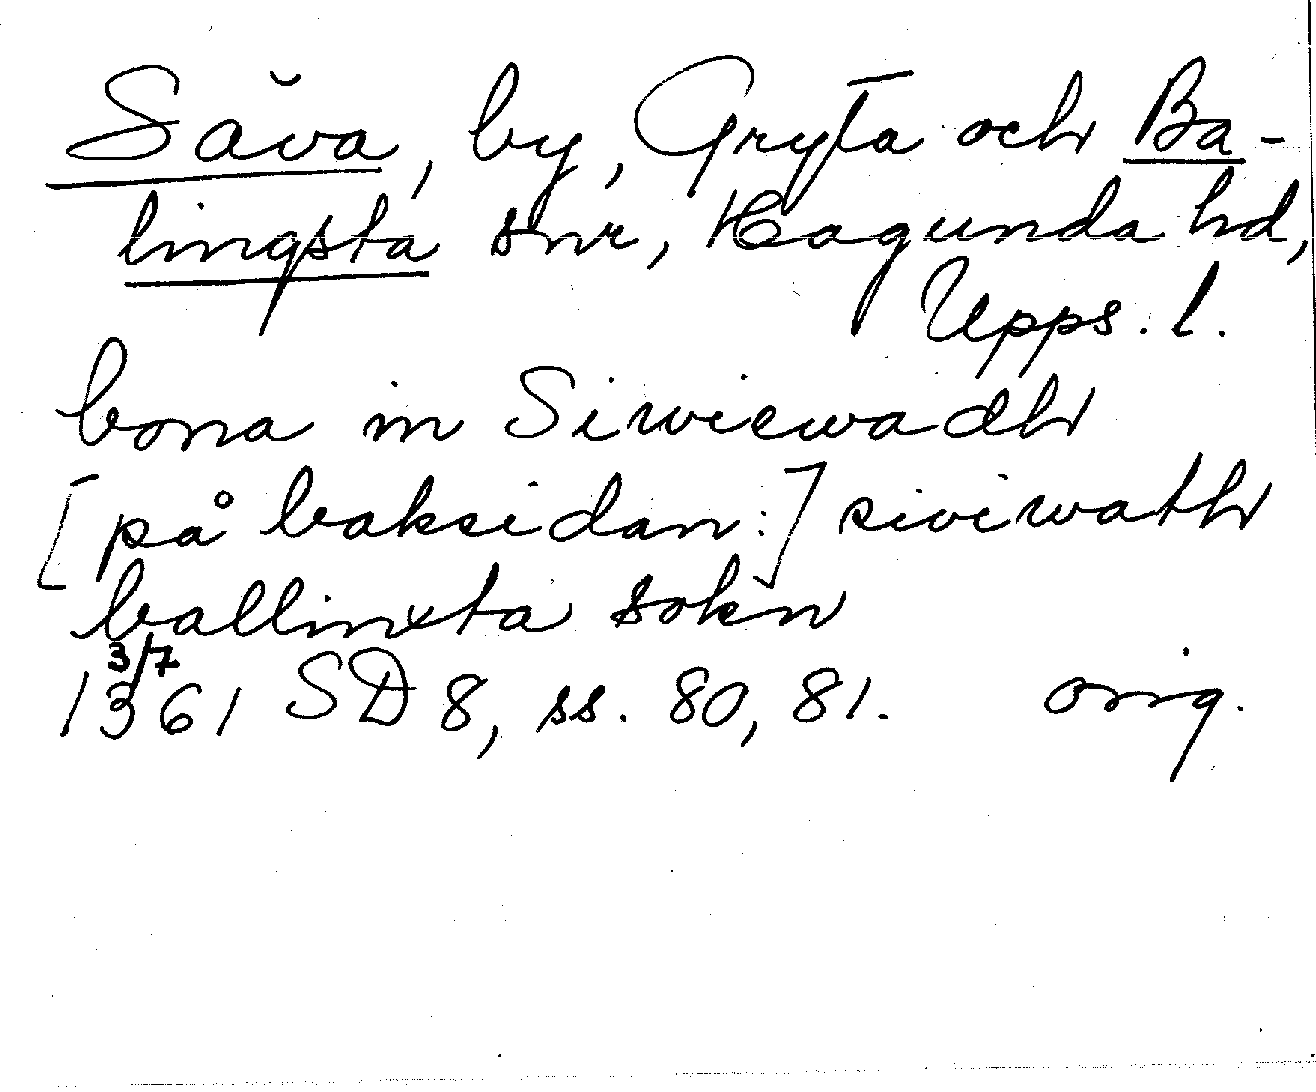 Säva, by, Gryta och Ba-
lingsta snr, Hagunda hd,
Upps. l.
bona in Siwiewadh
[på baksidan:] siviwath
ballinxta sokn
3/7
1361 SD 8, ss. 80, 81. orig.